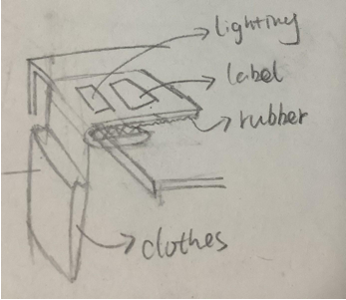 lighting
label
rubber
clothes